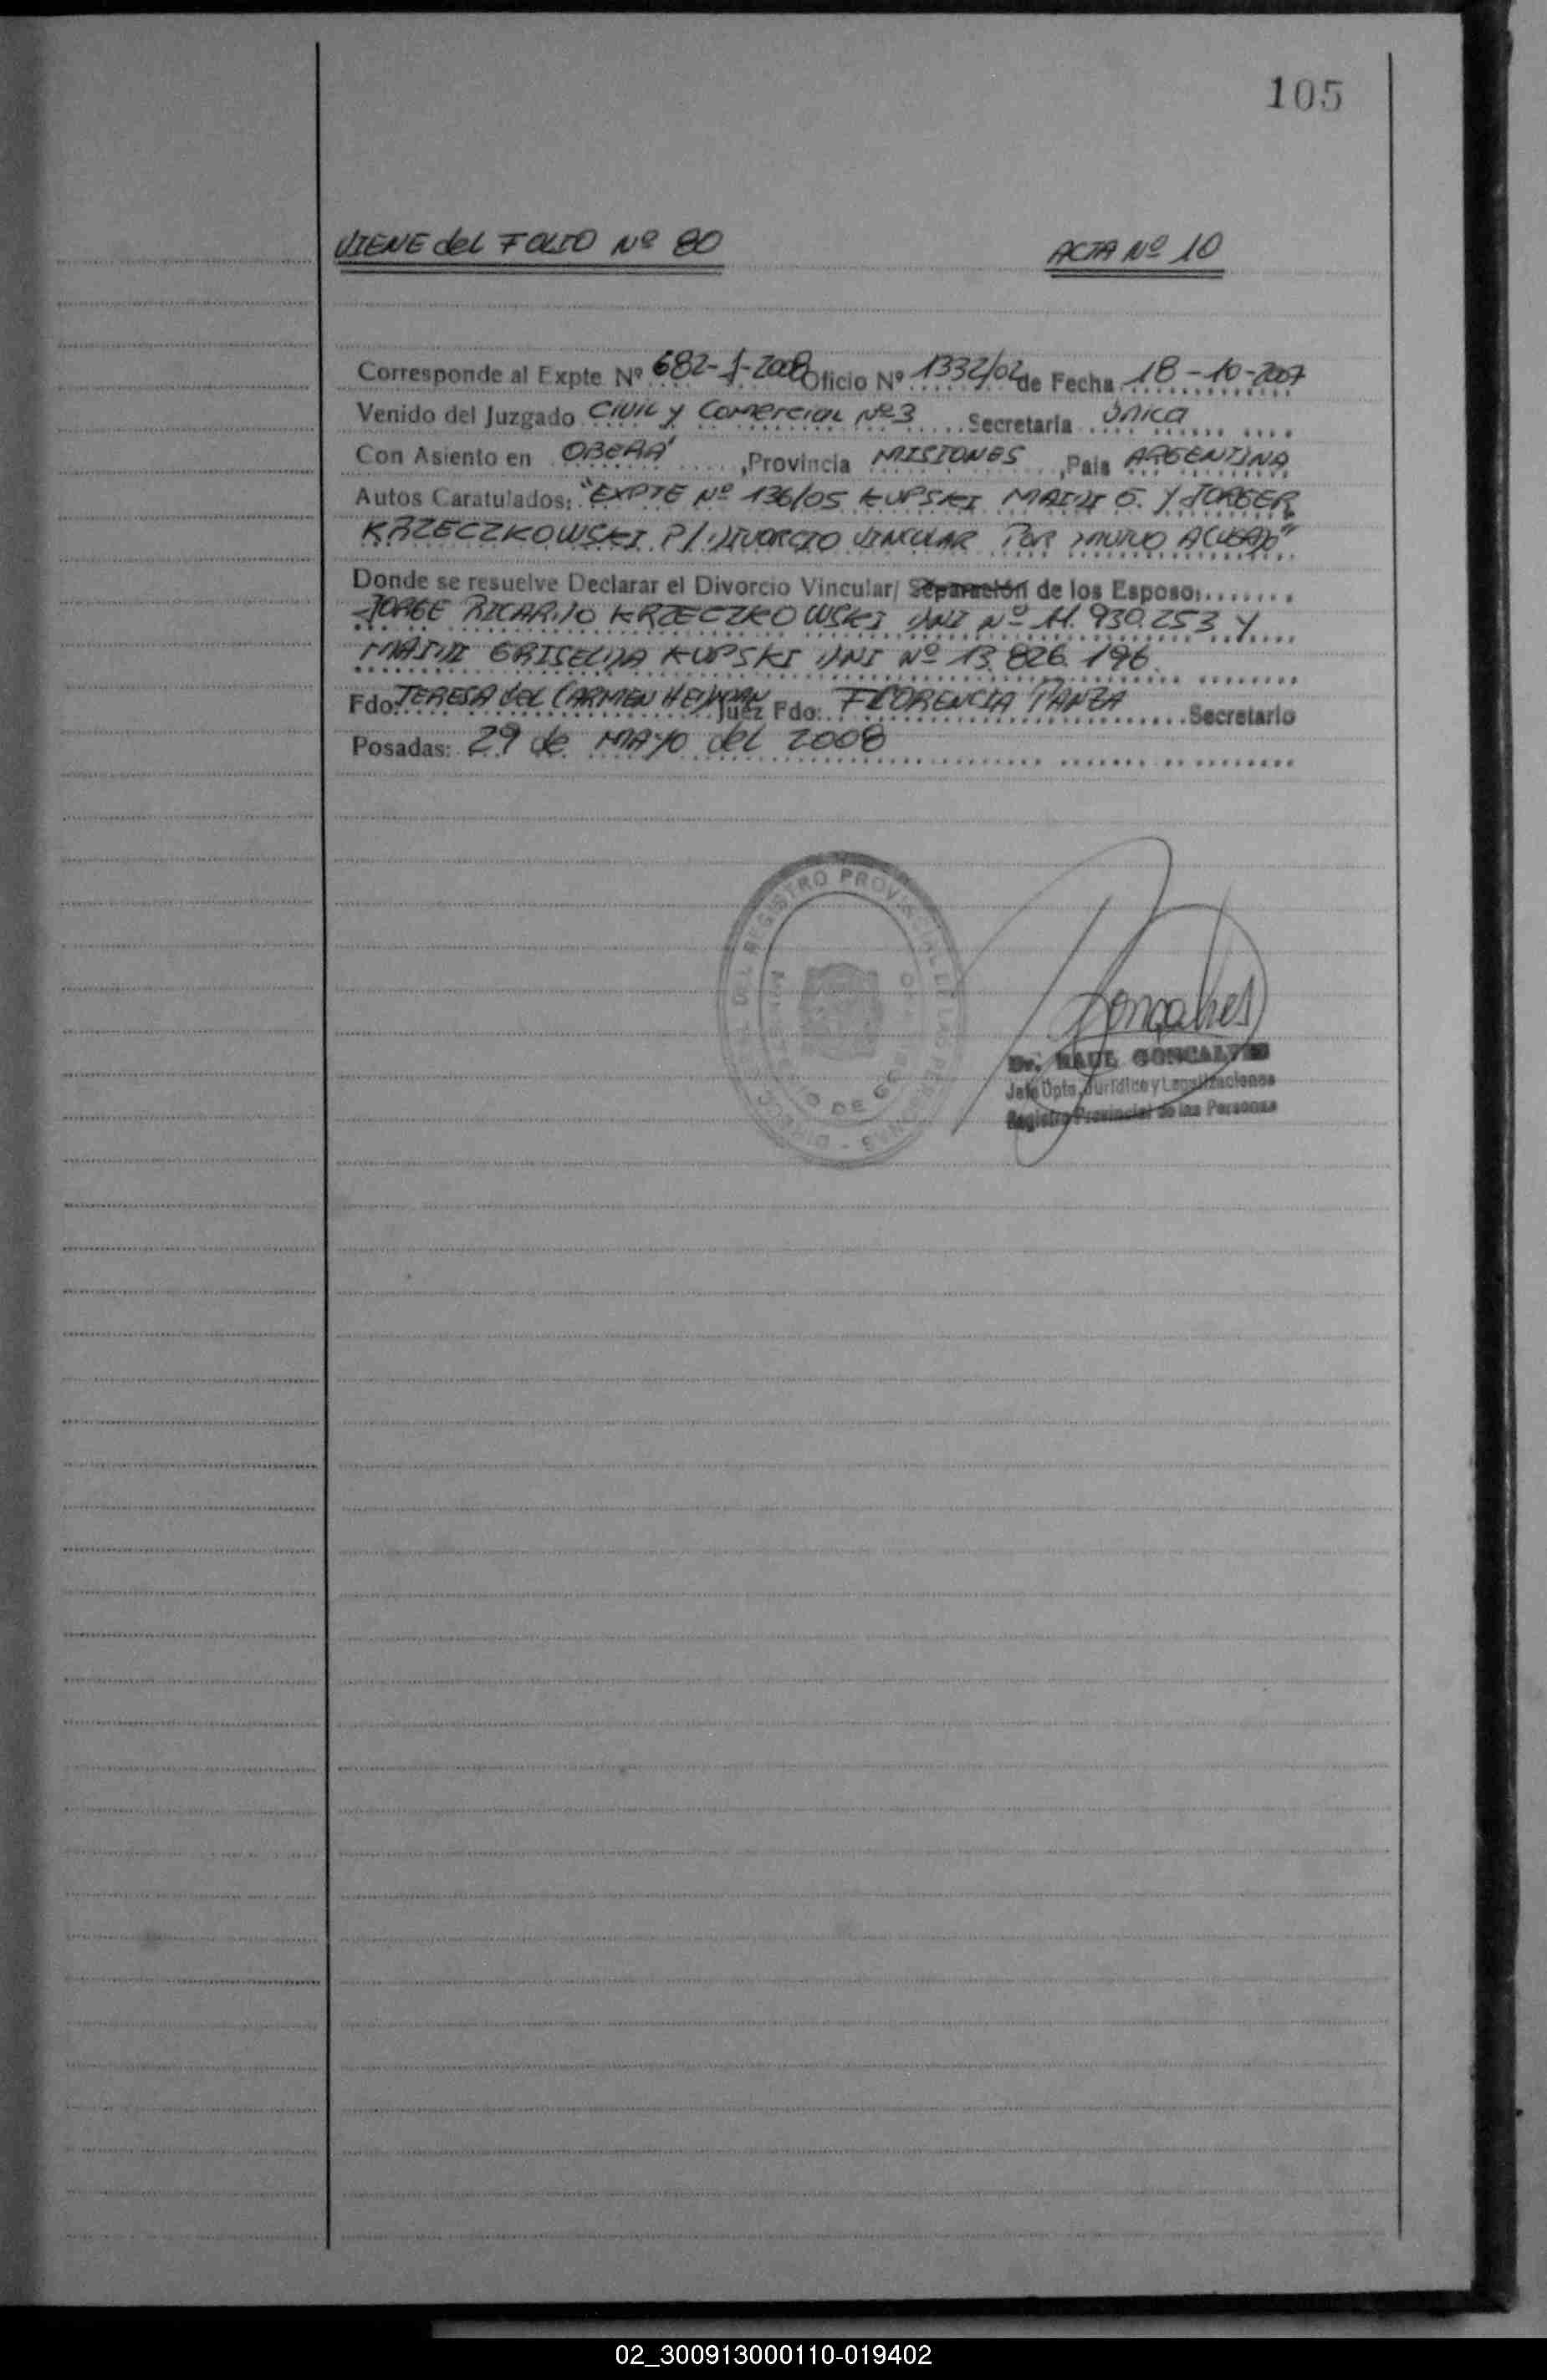 105
VIENE del FOLIO Nº 80 ACTA Nº 10
Corresponde al Expte Nº 682-J-2008 Oficio Nº 1332/02 de Fecha 18-10-2007
Venido del Juzgado Civil y Comercial Nº 3 Secretaria Única
Con Asiento en OBERÁ ,Provincia MISIONES ,Pais ARGENTINA
Autos Caratulados: "EXPTE Nº 136/05 KUPSKI MAIDI G. Y JORGE R
KRZECZKOWSKI P/ DIVORCIO VINCULAR POR MUTUO ACUERDO"
Donde se resuelve Declarar el Divorcio Vincular/ Separación de los Esposo:
JORGE RICARDO KRZECZKOWSKI DNI Nº 11.930.253 Y
MAIDI GRISELDA KUPSKI DNI Nº 13.826.196.
Fdo: TERESA DEL CARMEN Juez Fdo: FLORENCIA PANZA Secretario
Posadas: 29 de MAYO del 2008
DEL REGISTRO PROVINCIAL DE LAS PERSONAS
DE GO
Goncalves
Dr. RAUL GONCALVES
Jefe Dpto. Jurídico y Legalizaciones
Registro Provincial de las Personas
02_300913000110-019402